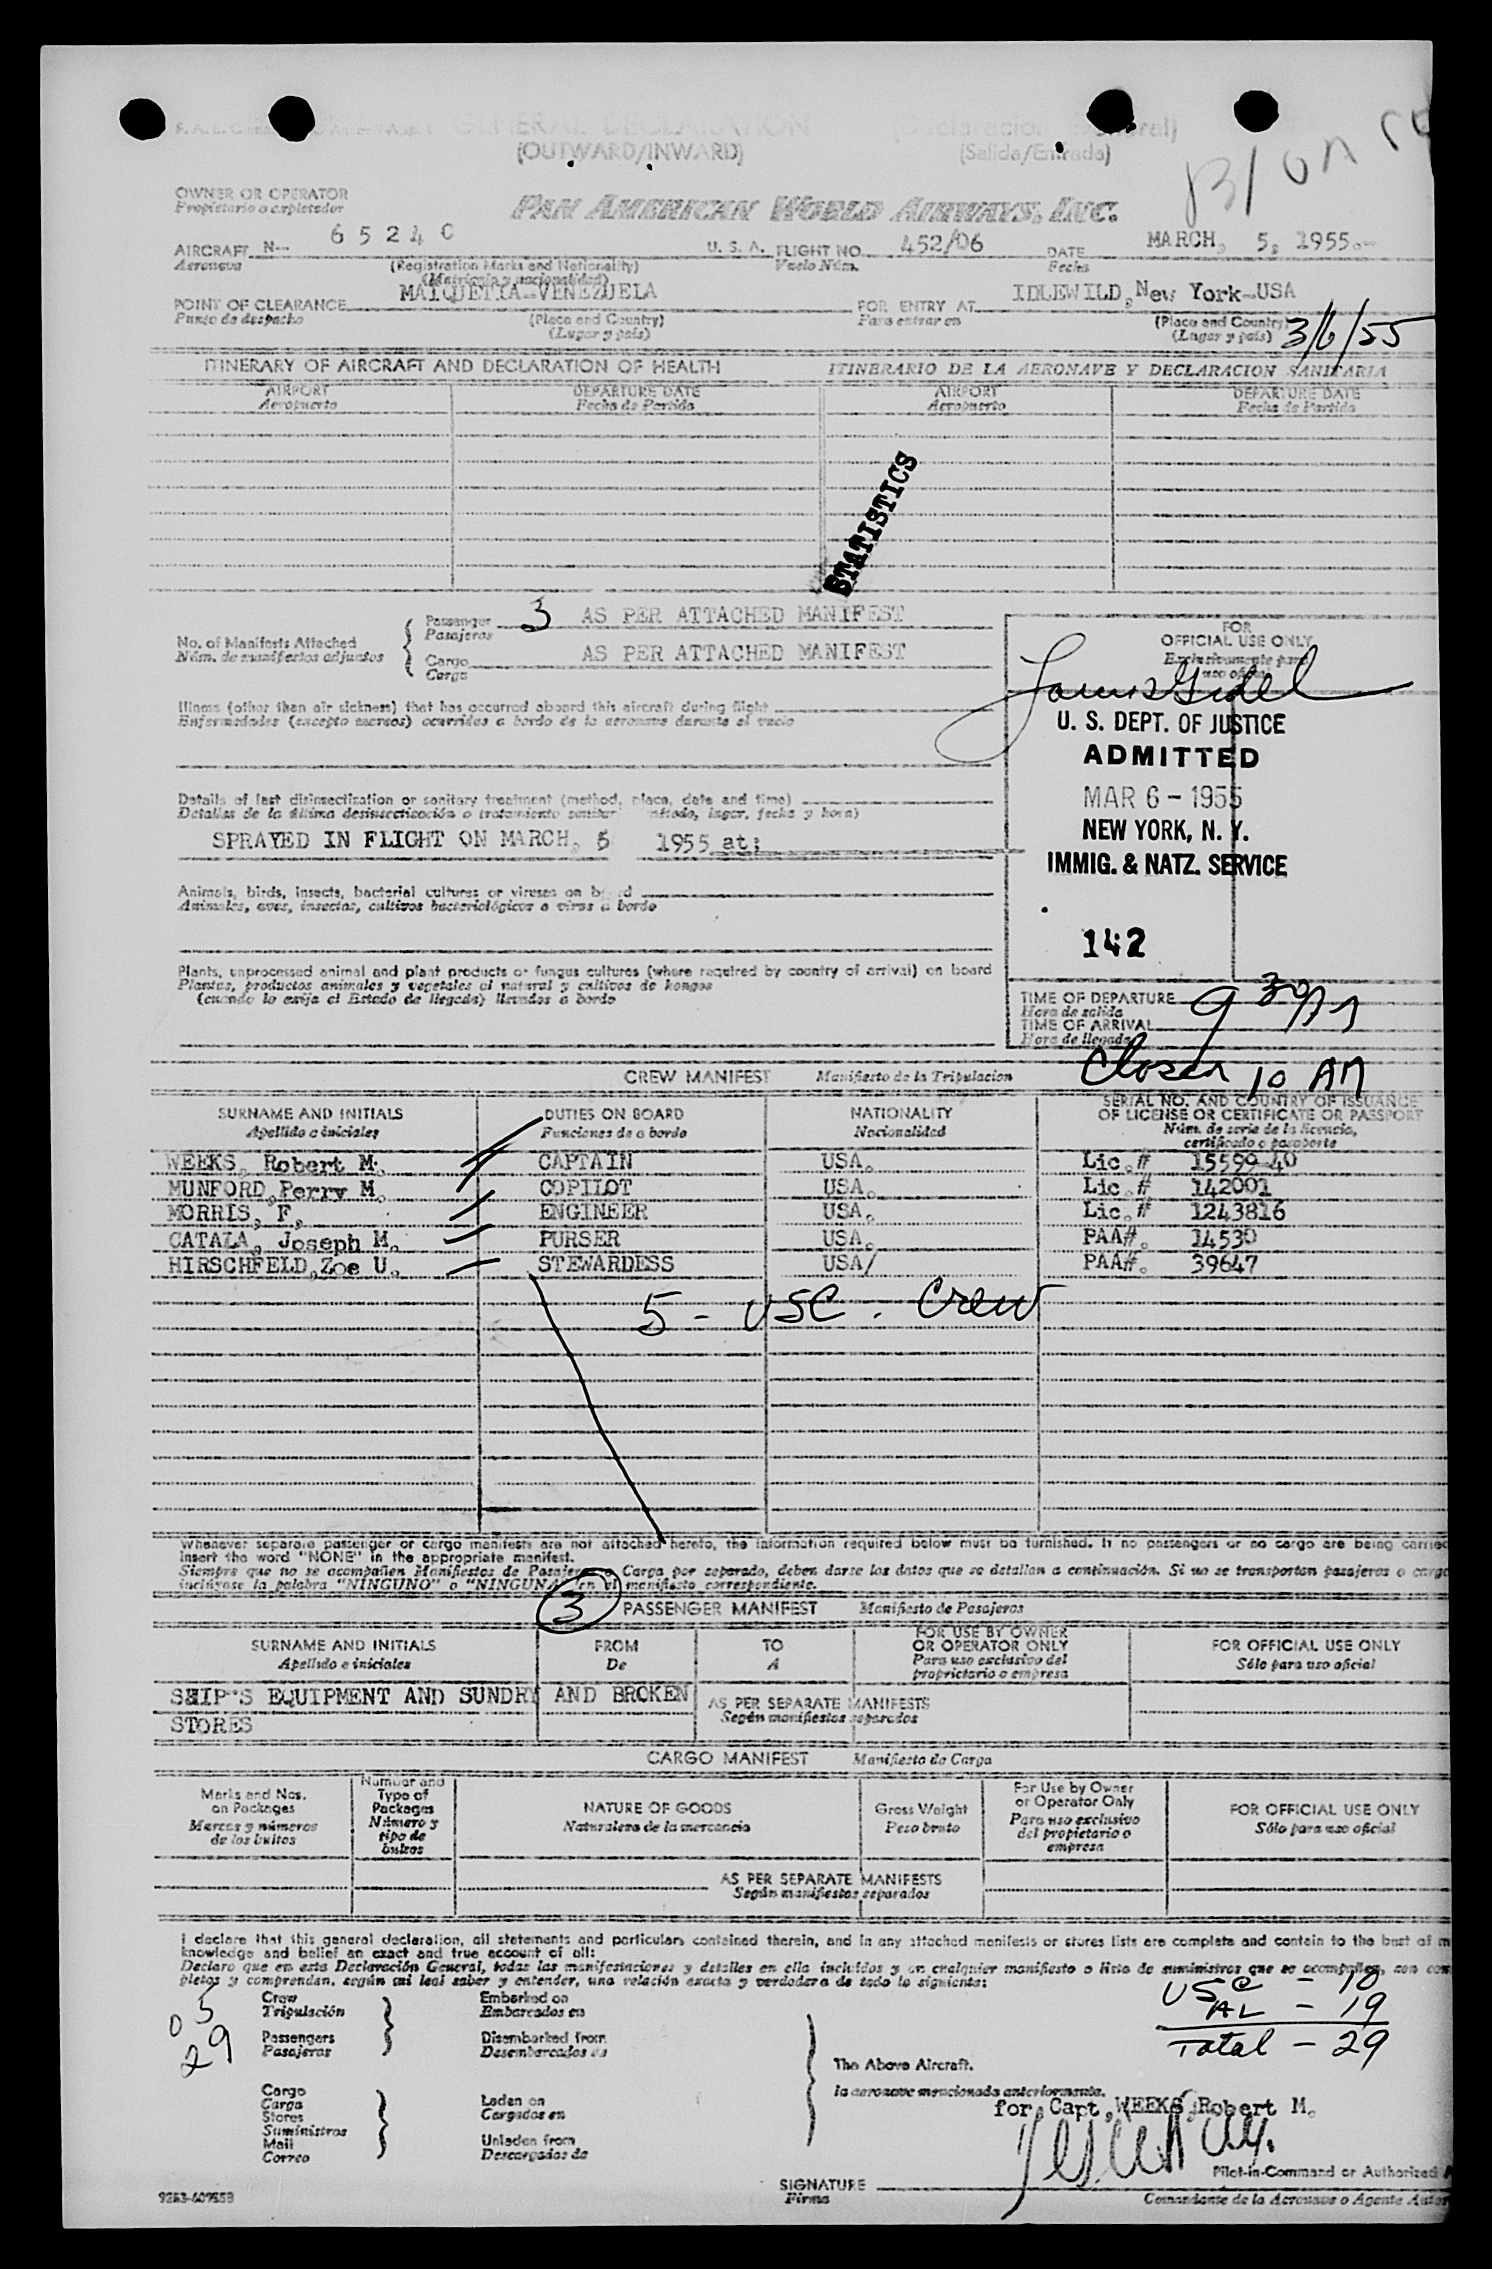 GENERAL DECLARATION
(OUTWARD/INWARD) (Salida/Entrada)
OWNER OR OPERATOR
Propietario o explotador
PAN AMERICAN WORLD AIRWAYS, INC.
AIRCRAFT N-- 65240 U. S. A. FLIGHT NO. 452/06 DATE MARCH, 5, 1955.-
Aeronave (Registration Marks and Nationality) Vuelo Núm. Fecha
(Matrícula y nacionalidad)
POINT OF CLEARANCE MAIQUETIA-VENEZUELA FOR ENTRY AT IDLEWILD, New York-USA
Punto de despacho (Place and Country) Para entrar en (Place and Country)
(Lugar y país) (Lugar y país) 3/6/55
ITINERARY OF AIRCRAFT AND DECLARATION OF HEALTH ITINERARIO DE LA AERONAVE Y DECLARACION SANITARIA
AIRPORT DEPARTURE DATE AIRPORT DEPARTURE DATE
Aeropuerto Fecha de Partida Aeropuerto Fecha de Partida
STATISTICS
No. of Manifests Attached
Núm. de manifiestos adjuntos
Passenger 3 AS PER ATTACHED MANIFEST
Pasajeros
Cargo AS PER ATTACHED MANIFEST
Carga
FOR
OFFICIAL USE ONLY
Exclusivamente para
uso oficial
Illness (other than air sickness) that has occurred aboard this aircraft during flight
Enfermedades (excepto mareos) ocurridas a bordo de la aeronave durante el vuelo
U. S. DEPT. OF JUSTICE
ADMITTED
MAR 6 - 1955
NEW YORK, N. Y.
IMMIG. & NATZ. SERVICE
142
Details of last disinsectization or sanitary treatment (method, place, date and time)
Detalles de la última desinsectización o tratamiento método, lugar, fecha y hora)
SPRAYED IN FLIGHT ON MARCH, 5 1955 at:
Animals, birds, insects, bacterial cultures or viruses on board
Animales, aves, insectos, cultivos bacteriológicos o virus a bordo
Plants, unprocessed animal and plant products or fungus cultures (where required by country of arrival) on board
Plantas, productos animales y vegetales al natural y cultivos de hongos
(cuando lo exija el Estado de llegada) llevados a bordo
TIME OF DEPARTURE 9 30 AM
Hora de salida
TIME OF ARRIVAL
Hora de llegada
10 AM
CREW MANIFEST Manifiesto de la Tripulacion
SURNAME AND INITIALS DUTIES ON BOARD NATIONALITY SERIAL NO. AND COUNTRY OF ISSUANCE
OF LICENSE OR CERTIFICATE OR PASSPORT
Apellido e iniciales Funciones de a bordo Nacionalidad Núm. de serie de la licencia,
certificado o pasaporte
WEEKS, Robert M. CAPTAIN USA. Lic.# 15599-40
MUNFORD, Perry M. COPILOT USA. Lic.# 142001
MORRIS, F, ENGINEER USA. Lic.# 1243816
CATALA, Joseph M. PURSER USA. PAA#. 14530
HIRSCHFELD, Zoe U. STEWARDESS USA/ PAA#. 39647
5 - USC. Crew
Whenever separate passenger or cargo manifests are not attached hereto, the information required below must be furnished. If no passengers or no cargo are being carried
insert the word "NONE" in the appropriate manifest.
Siempre que no se acompañen Manifiestos de Pasajeros o Carga por separado, deben darse los datos que se detallan a continuación. Si no se transportan pasajeros o carga
inclúyase la palabra "NINGUNO" o "NINGUNA" en el manifiesto correspondiente.
3 PASSENGER MANIFEST Manifiesto de Pasajeros
SURNAME AND INITIALS FROM TO FOR USE BY OWNER
OR OPERATOR ONLY FOR OFFICIAL USE ONLY
Apellido e iniciales De A Para uso exclusivo del
propietario o empresa Sólo para uso oficial
SHIP'S EQUIPMENT AND SUNDRY AND BROKEN
STORES
AS PER SEPARATE MANIFESTS
Según manifiestos separados
CARGO MANIFEST Manifiesto de Carga
Marks and Nos.
on Packages
Marcas y números
de los bultos
Number and
Type of
Packages
Número y
tipo de
bultos
NATURE OF GOODS
Naturaleza de la mercancía
Gross Weight
Peso bruto
For Use by Owner
or Operator Only
Para uso exclusivo
del propietario o
empresa
FOR OFFICIAL USE ONLY
Sólo para uso oficial
AS PER SEPARATE MANIFESTS
Según manifiestos separados
I declare that this general declaration, all statements and particulars contained therein, and in any attached manifests or stores lists are complete and contain to the best of m
knowledge and belief an exact and true account of all:
Declaro que en esta Declaración General, todas las manifestaciones y detalles en ella incluídos y en cualquier manifiesto o lista de suministros que se acompañen, son com
pletos y comprenden, según mi leal saber y entender, una relación exacta y verdadera de todo lo siguiente:
USC - 10
AL - 19
Total - 29
05
29
Crew
Tripulación
Passengers
Pasajeros
Embarked on
Embarcados en
Disembarked from
Desembarcados de
Cargo
Carga
Stores
Suministros
Mail
Correo
Laden on
Cargados en
Unladen from
Descargados de
The Above Aircraft.
la aeronave mencionada anteriormente.
for, Capt, WEEKS, Robert M.
SIGNATURE
Firma
Pilot-in-Command or Authorized A
Comandante de la Aeronave o Agente Autor